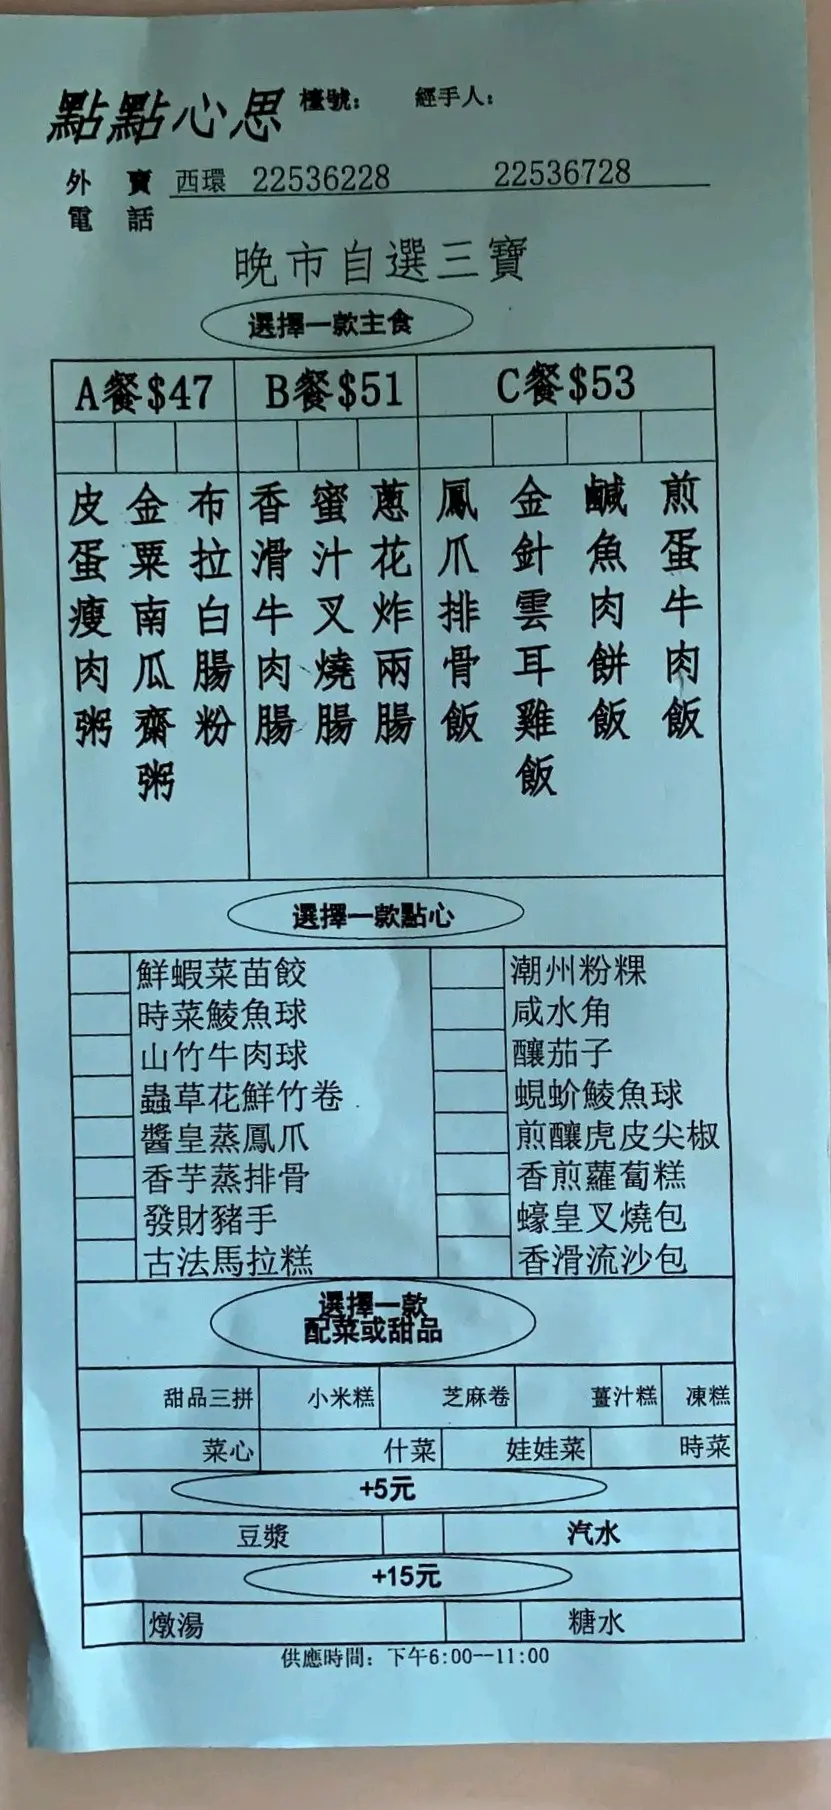 點點心思 檯號： 經手人：
外賣 西環 22536228 22536728
電話
晚市自選三寶
選擇一款主食
A餐$47 B餐$51 C餐$53
皮蛋瘦肉粥
金粟南瓜齋粥
布拉白腸粉
香滑牛肉腸
蜜汁叉燒腸
蔥花炸兩腸
鳳爪排骨飯
金針雲耳雞飯
鹹魚肉餅飯
煎蛋牛肉飯
選擇一款點心
鮮蝦菜苗餃 潮州粉粿
時菜鯪魚球 咸水角
山竹牛肉球 釀茄子
蟲草花鮮竹卷 蜆蚧鯪魚球
醬皇蒸鳳爪 煎釀虎皮尖椒
香芋蒸排骨 香煎蘿蔔糕
發財豬手 蠔皇叉燒包
古法馬拉糕 香滑流沙包
選擇一款
配菜或甜品
甜品三拼 小米糕 芝麻卷 薑汁糕 凍糕
菜心 什菜 娃娃菜 時菜
+5元
豆漿 汽水
+15元
燉湯 糖水
供應時間：下午6:00--11:00